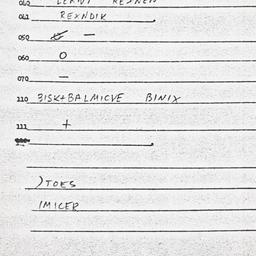 041 REXNDIK
050 —
060 O
070 —
110 BISK+BALMICVE BINIX
111 +
)TOES
IMICER